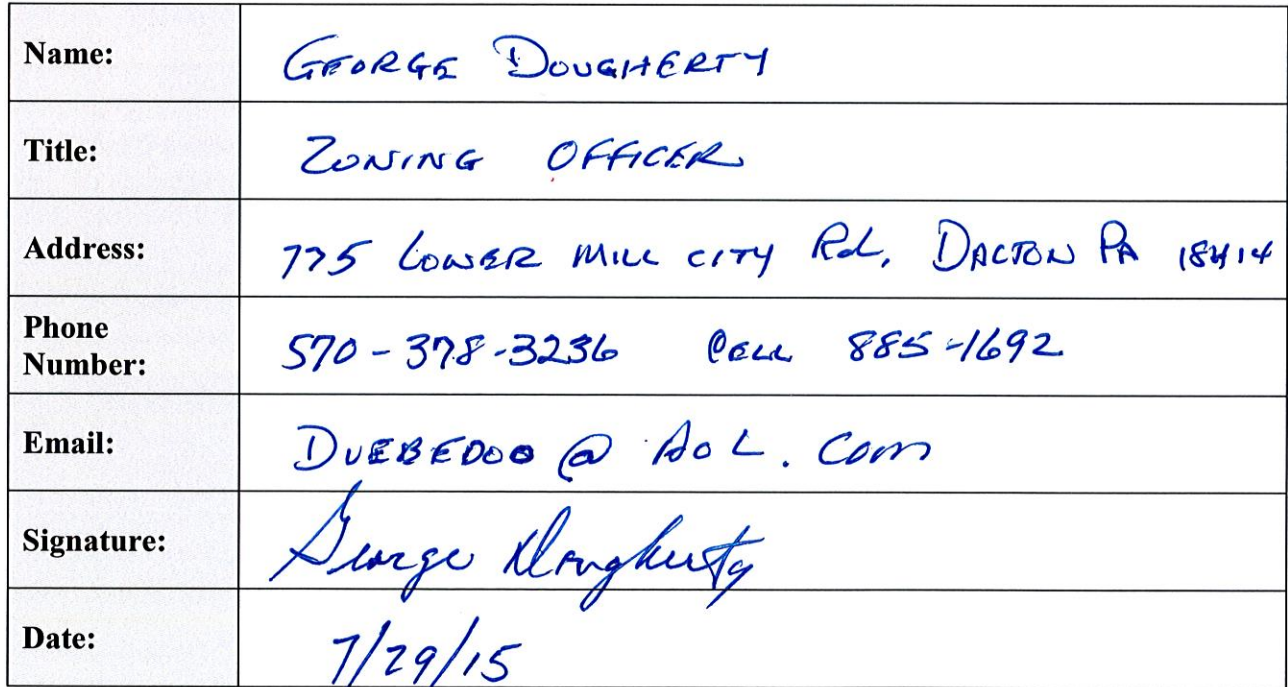 Name: GEORGE DOUGHERTY
Title: ZONING OFFICER
Address: 775 LOWER MILL CITY Rd, DALTON PA 18414
Phone
Number: 570-378-3236 CELL 885-1692
Email: DUEBEDOO @ AOL. COM
Signature: George Dougherty
Date: 7/29/15